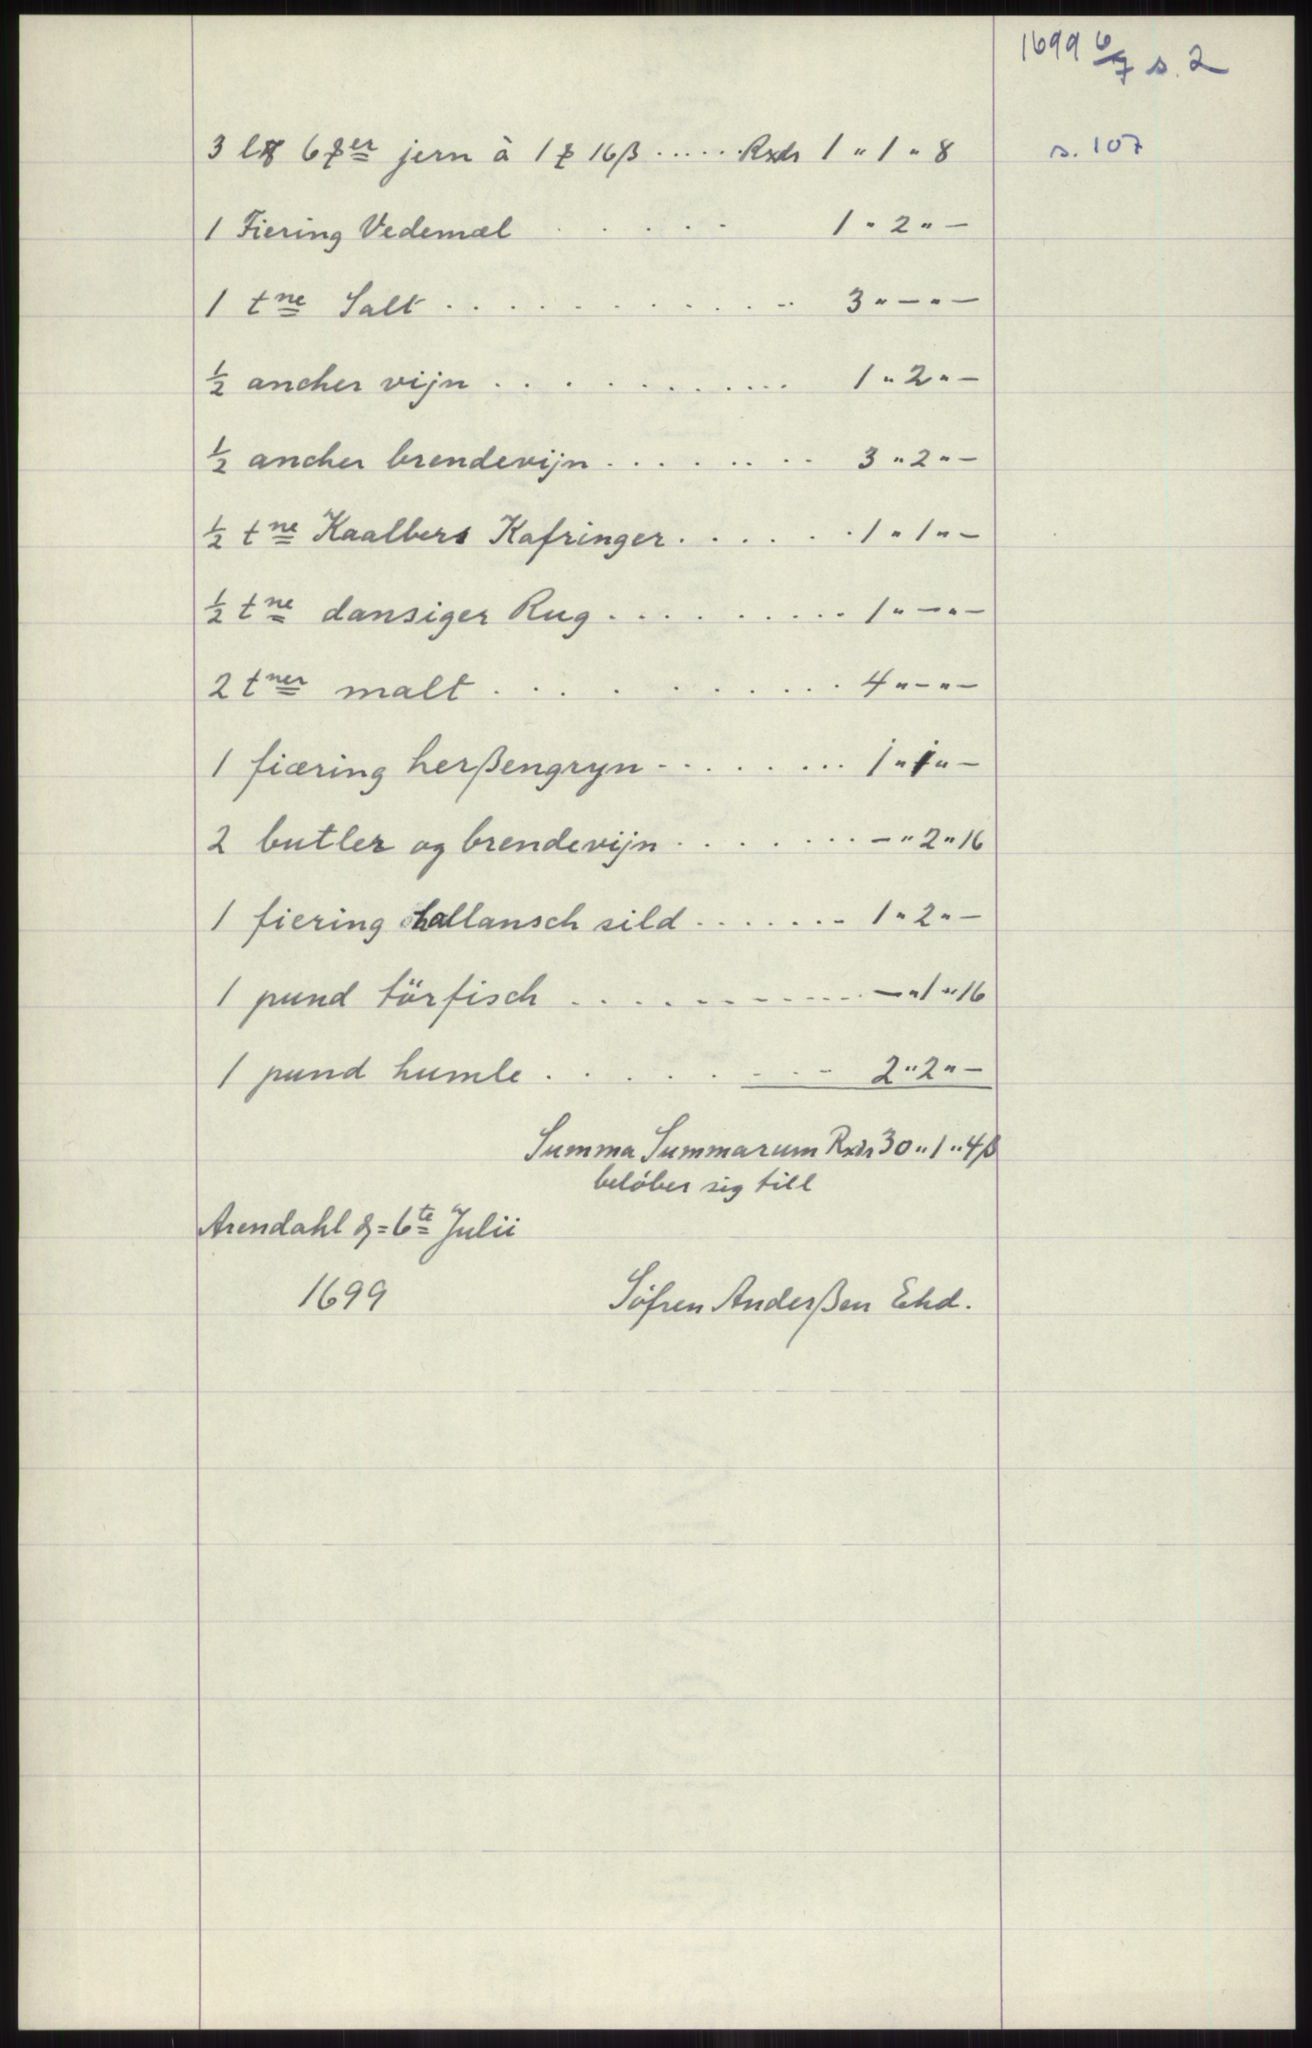 1699 6/7 s. 2
s. 107
3 l℔ 6 ℔er jern à 1 ℔ 16 ß ...... Rxdr 1 " 1 " 8
1 Fiering Vedemæl ..... 1 " 2 " —
1 tne Salt ........... 3 " — " —
½ ancher vijn ........... 1 " 2 " —
½ ancher brendevijn ........ 3 " 2 " —
½ tne Kaalbers Kafringer ...... 1 " 1 " —
½ tne dansiger Rug ......... 1 " — " —
2 tner malt .......... 4 " — " —
1 fiæring herßengryn ........ 1 " 1 " —
2 butler og brendevijn ....... — " 2 " 16
1 fiering hallansch sild ....... 1 " 2 " —
1 pund törfisch ........... — " 1 " 16
1 pund humle ........ 2 " 2 " —
Summa Summarum Rxdr 30 " 1 " 4 ß
beløber sig till
Arendahl d = 6te Julii
1699 Søfren Anderßen Ehd.